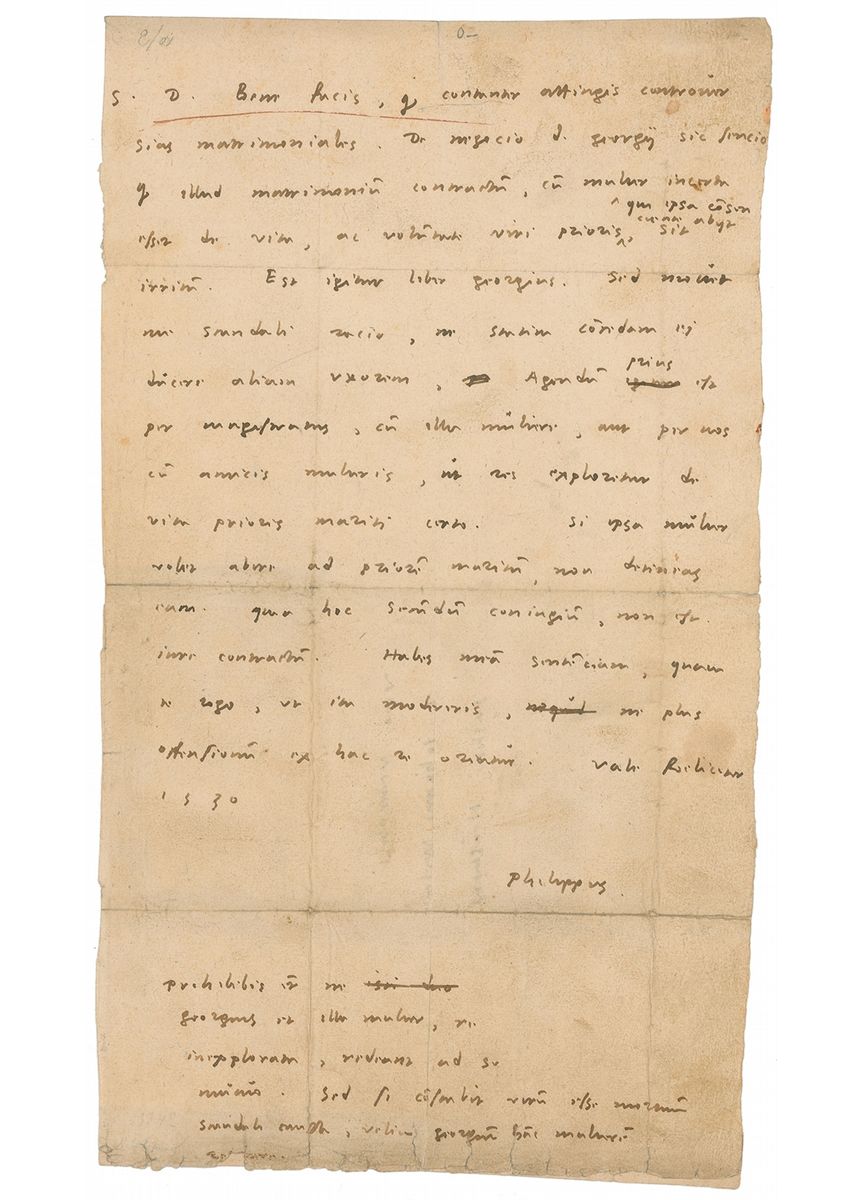 S. D. Bene facis, q contanter attingis controver
sias matrimoniales. De negocio d. georgij sic sencio
q illud matrimoniū contractū, cū mulier incerta
qui ipsa cōsen
esset de vita, ac volūtate viri prioris, sit
irritū. Est igitur liber georgius. Sed movet
me scandali racio, ne statim cōcedam ej
prius
dūcere aliam vxorem, Agendū est
per magistratus, cū illa mūliere, aut per vos
cū amicis mulieris, ut res exploretur de
vita prioris mariti certo. Si ipsa mūlier
volet abire ad priorē maritū, non detineas
eam. quia hoc secūdū coniugiū, non est
iure contractū. Habes meā sentēciam, quam
te rogo, vt ita modereris, nequid ne plus
offensionū ex hac re oriatur. Vale foeliciter
1530
Philippus.
prohibebis etiā ne
georgius et illa mulier, re
inexplorata, redeant ad se
mutuo. Sed si cōstabit virū esse mortuū
scandali causa, velim georgiū hāc mulierē